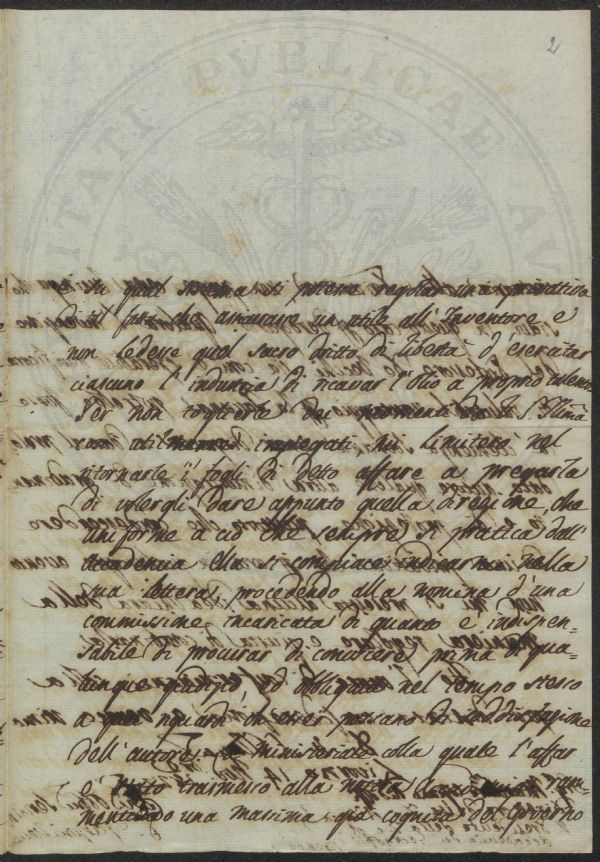 2
e di qual sistema si poteva regolar una privativa
di tal fatta che assicurare un utile all'Inventore e
non ledesse quel sacro dritto di libertà d'esercitar
ciascuno l'industria di ricavar l'olio a proprio talento
Per non toglierle dei momenti S. Illma
utilmente impiegati mi limiterò nel
ritornarle i fogli di detto affare a pregarla
di volergli dare appunto quella direzione, che
uniforme a ciò che sempre si pratica dall'
Accademia ella si compiace indicarmi nella
sua lettera, procedendo alla nomina d'una
commissione incaricata di quanto è indispen-
sabile di procurar di conoscere prima di qua-
lunque giudizio, ed obbligata nel tempo stesso
a riguardi ch'esser possano di soddisfazione
dell'autore. ministeriale colla quale l'affar
è stato trasmesso alla nostra ram-
mentando una massima già cognita del Governo